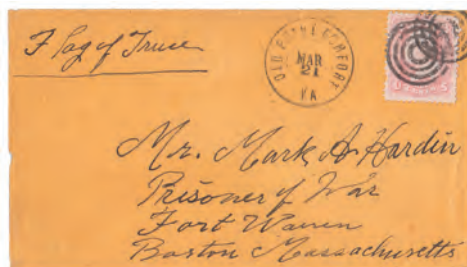 Flag of Truce
OLD POINT COMFORT
MAR
21
VA
Mr. Mark A Hardin
Prisoner of War
Fort Warren
Boston Massachusetts